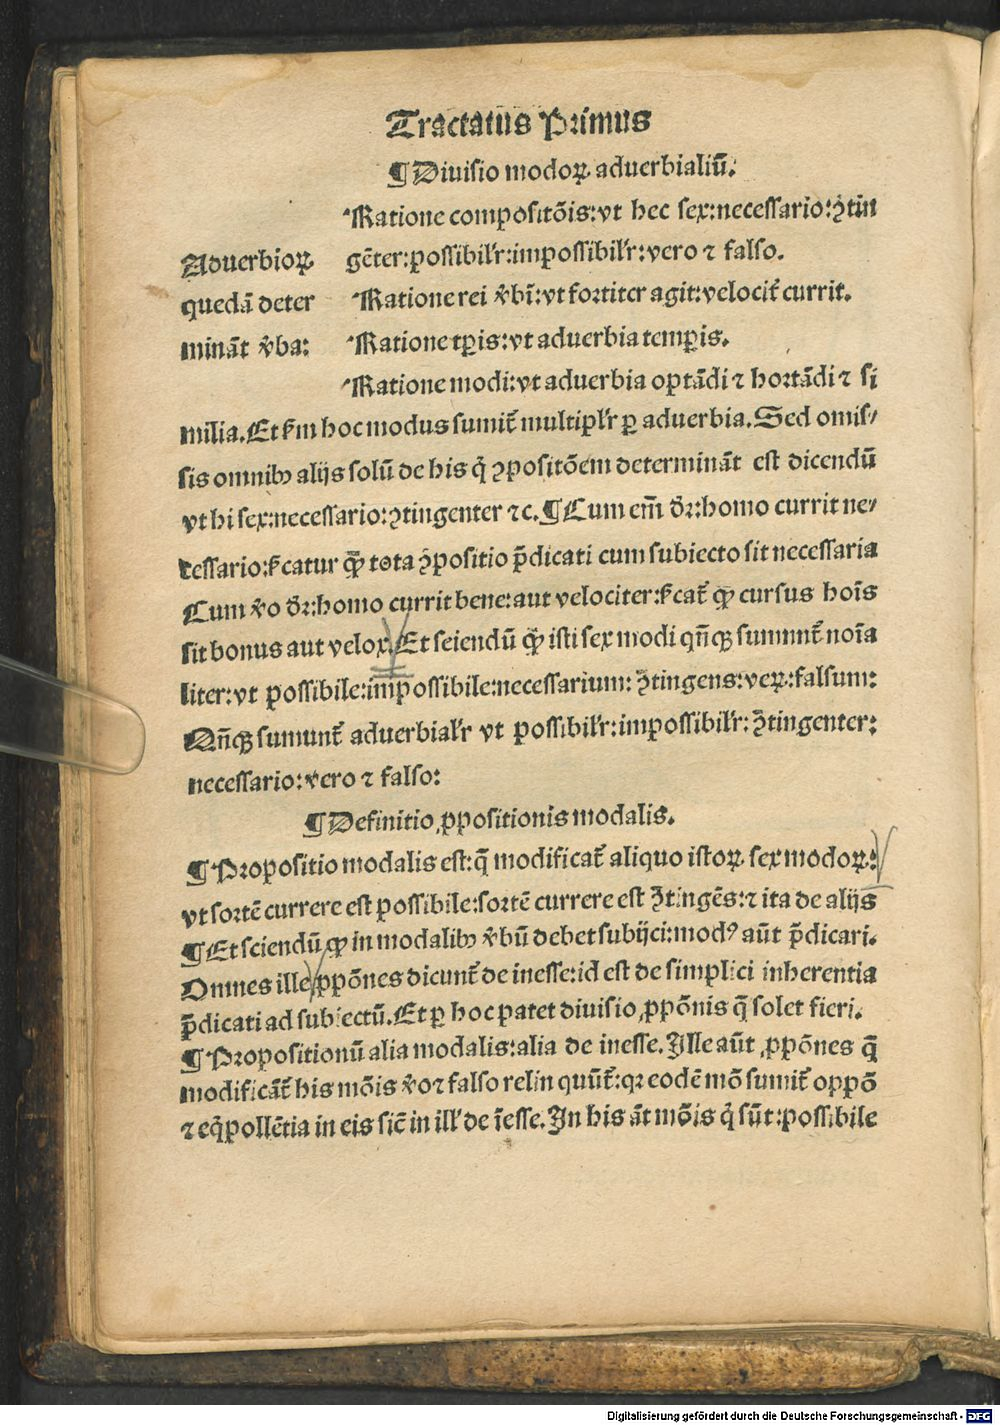 Tractatus Primus
¶Diuisio modoꝝ aduerbialiū.
Ratione compositõis:vt hec sex:necessario:ↄ̃tin
Aduerbioꝝ gẽter:possibiľr:impossibiľr:vero ⁊ falso.
quedã deter Ratione rei v̾bi:vt fortiter agit:velocit̃ currit.
minãt v̾ba: Ratione tꝑis:vt aduerbia temꝑis.
Ratione modi:vt aduerbia optãdi ⁊ hortãdi ⁊ si
milia.Et ẜm hoc modus sumit̃ multipľr ꝑ aduerbia.Sed omis⸗
sis omnibꝰ alijs solū de his q̇ ↄpositõem determinãt est dicendū
vt hi sex:necessario:ↄtingenter ⁊c.¶Cum em̃ dr̃:homo currit ne⸗
cessario:ẜcatur ꝙ tota ↄ̃positio p̃dicati cum subiecto sit necessaria
Cum v̾o dr̃:homo currit bene:aut velociter:ẜcat̃ ꝙ cursus hoĩs
sit bonus aut velox.Et seiendū ꝙ isti sex modi qñqꝫ sumunt̃ noĩa
liter:vt possibile:impossibile:necessarium:ↄ̃tingens:veꝝ:falsum:
Qñqꝫ sumunt̃ aduerbiaľr vt possibiľr:impossibiľr:ↄ̃tingenter:
necessario:vero ⁊ falso:
¶Definitio ꝓpositionis modalis.
¶Propositio modalis est:q̃ modificat̃ aliquo istoꝝ sex modoꝝ:
vt sortẽ currere est possibile:sortẽ currere est ↄ̃tingẽs:⁊ ita de alijs
¶Et sciendū ꝙ in modalibꝰ v̾bū debet subijci:modꝰ aūt p̃dicari.
Omnes ille ꝓpõnes dicunt̃ de inesse:id est de simplici inherentia
p̃dicati ad subiectū.Et ꝑ hoc patet diuisio ꝓpõnis q̃ solet fieri.
¶Propositionū alia modalis:alia de inesse.Ille aūt ꝓpõnes q̃
modificãt̃ his mõis v̾o ⁊ falso relin quūt̃:qꝛ eodẽ mõ sumit̃ oppõ
⁊ eq̇pollẽtia in eis sic̃ in ill' de ĩesse.In his ãt mõis q̇ sūt:possibile
Digitalisierung gefördert durch die Deutsche Forschungsgemeinschaft - DFG